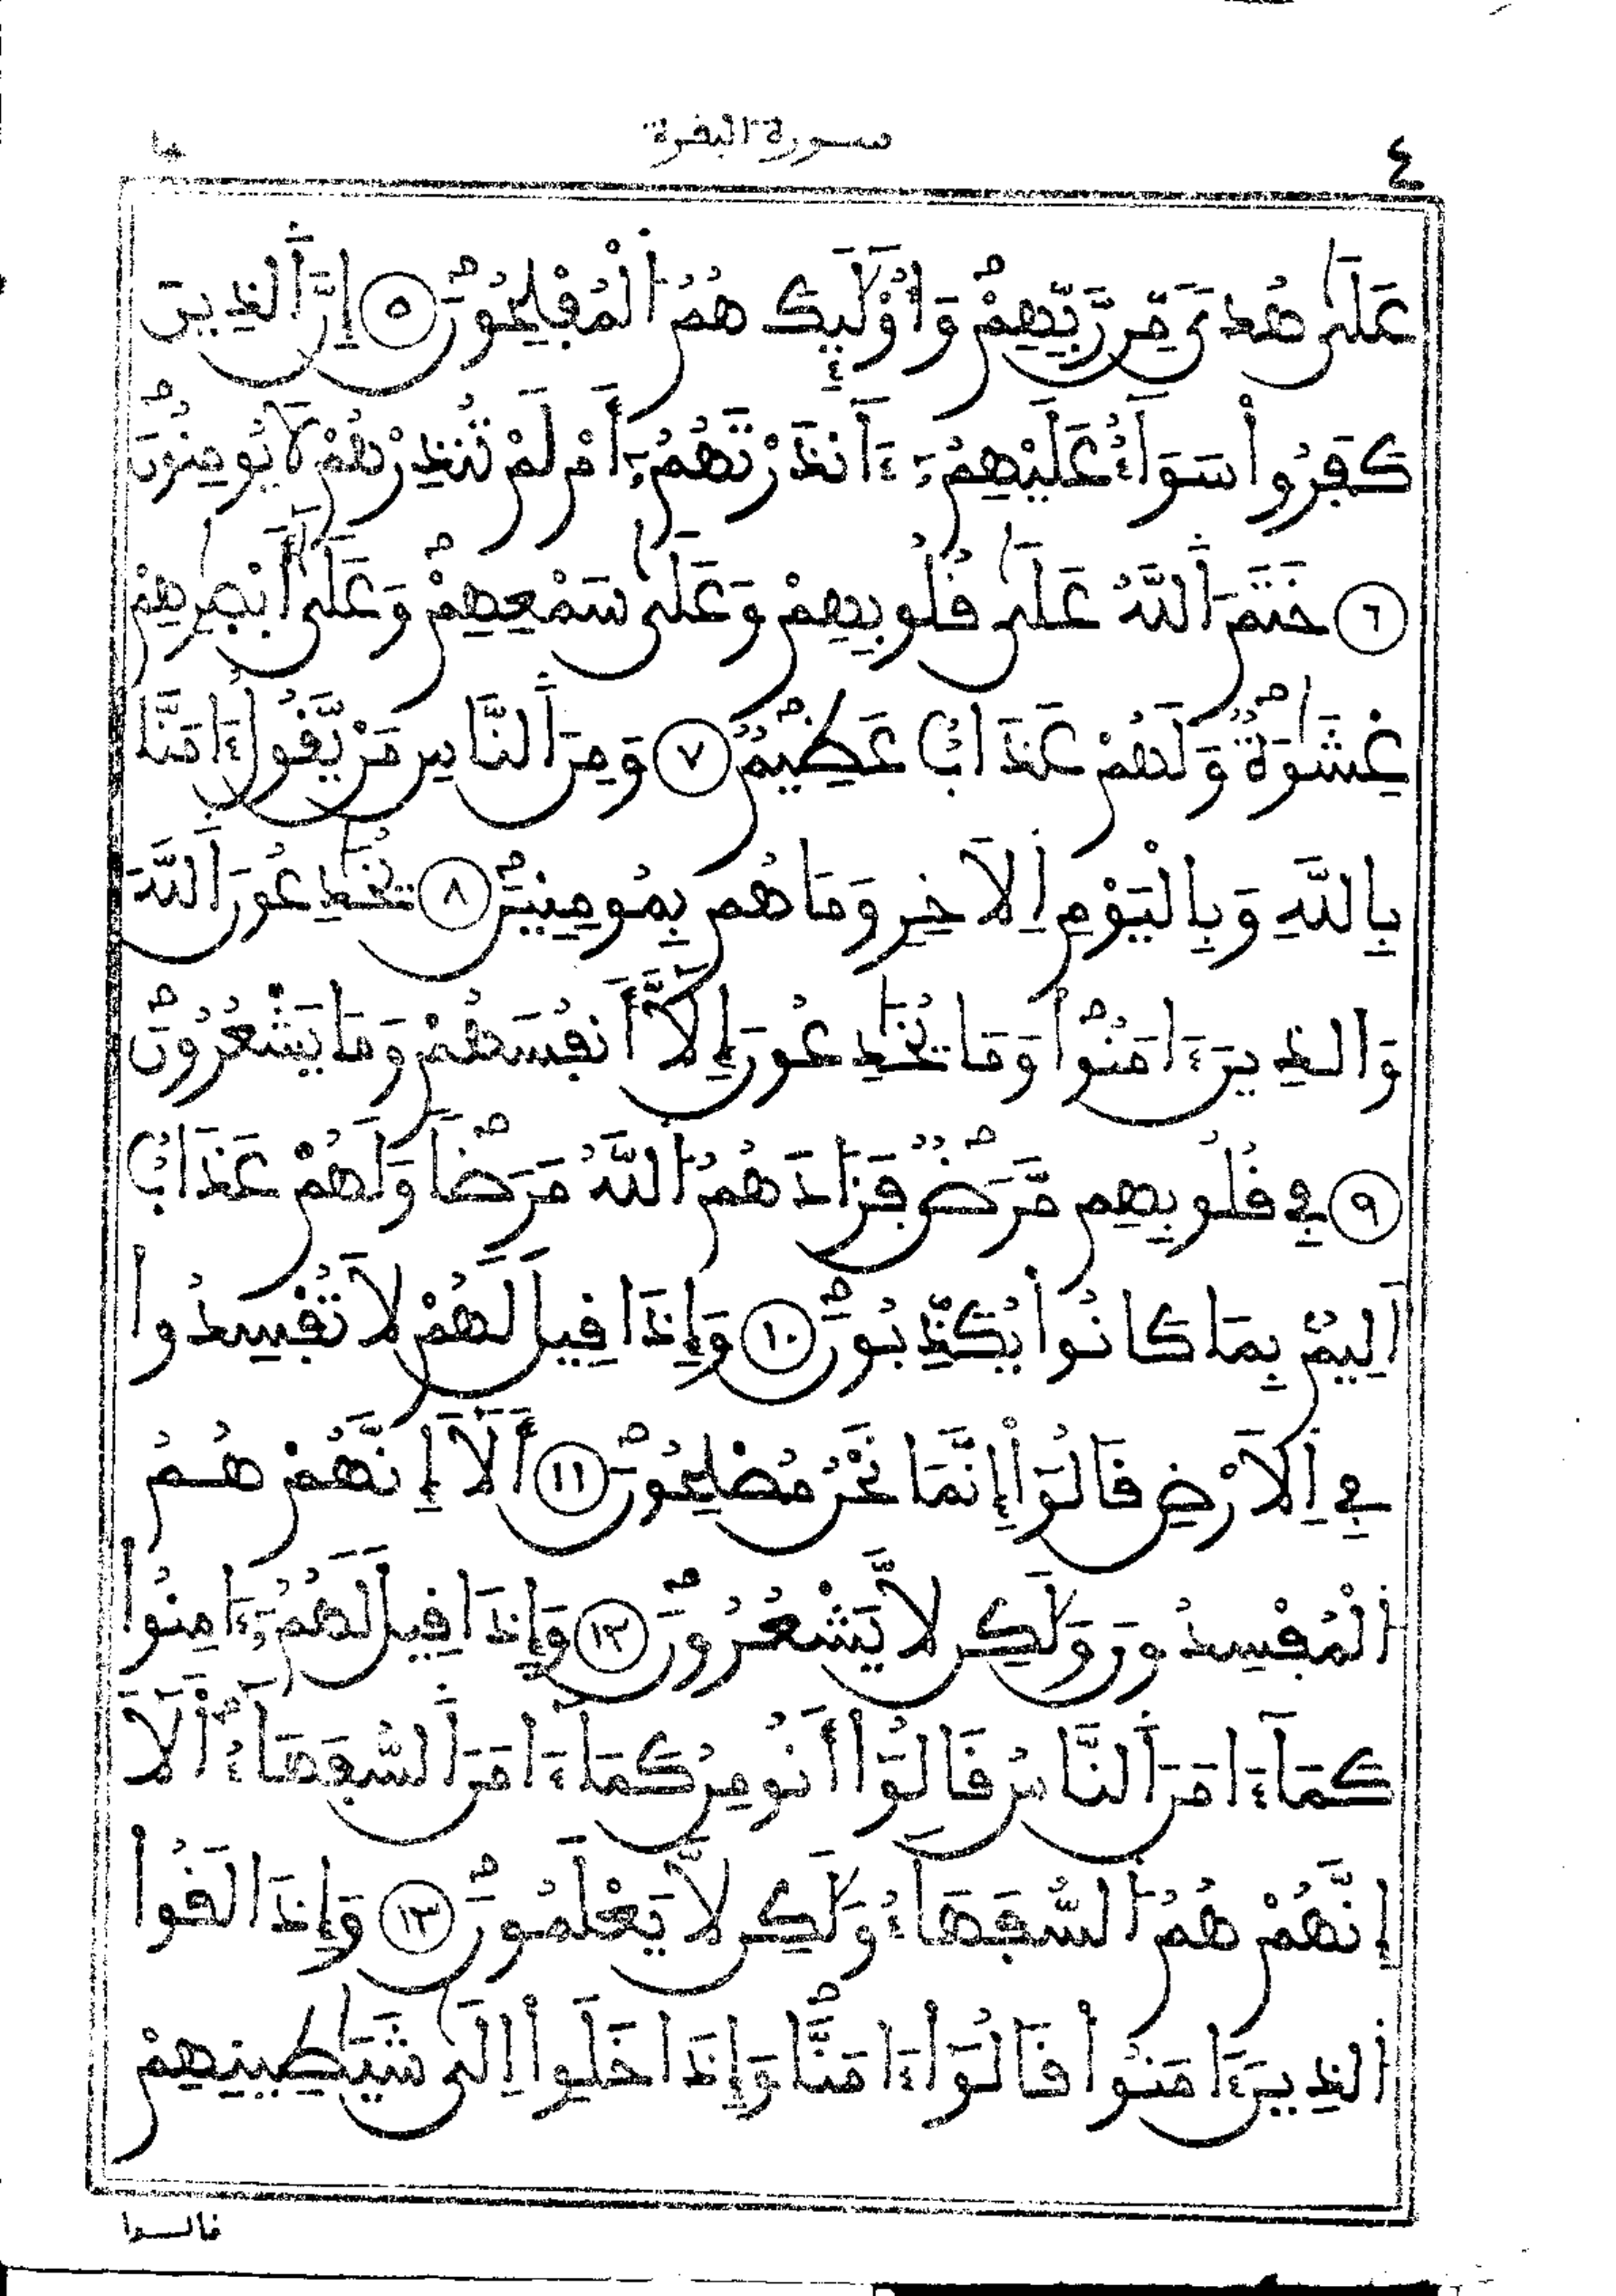 ٤ سورة البقرة
عَلَىٰ هُدىً مِّن رَّبِّهِمْ وَأُوْلَٰٓئِكَ هُمُ اُ۬لْمُفْلِحُونَۖ ٥ إِنَّ اَ۬لذِينَ
كَفَرُواْ سَوَآءٌ عَلَيْهِمُۥٓ ءَآنذَرْتَهُمُۥٓ أَمْ لَمْ تُنذِرْهُمْ لَا يُومِنُونَۖ
٦ خَتَمَ اَ۬للَّهُ عَلَىٰ قُلُوبِهِمْ وَعَلَىٰ سَمْعِهِمْۖ وَعَلَىٰٓ أَبْصَٰرِهِمْ
غِشَٰوَةٌۖ وَلَهُمْ عَذَابٌ عَظِيمٌۖ ٧ وَمِنَ اَ۬لنَّاسِ مَنْ يَّقُولُ ءَامَنَّا
بِاللَّهِ وَبِالْيَوْمِ اِ۬لَاخِرِ وَمَا هُم بِمُومِنِينَۖ ٨ يُخَٰدِعُونَ اَ۬للَّهَ
وَالذِينَ ءَامَنُواْۖ وَمَا يُخَٰدِعُونَ إِلَّآ أَنفُسَهُمْ وَمَا يَشْعُرُونَۖ
٩ فِي قُلُوبِهِم مَّرَضٌۖ فَزَادَهُمُ اُ۬للَّهُ مَرَضاًۖ وَلَهُمْ عَذَابٌ
اَلِيمٌۢ بِمَا كَانُواْ يُكَذِّبُونَۖ ١٠ وَإِذَا قِيلَ لَهُمْ لَا تُفْسِدُواْ
فِي اِ۬لَارْضِ قَالُوٓاْ إِنَّمَا نَحْنُ مُصْلِحُونَۖ ١١ أَلَآ إِنَّهُمْ هُمُ
اُ۬لْمُفْسِدُونَ وَلَٰكِن لَّا يَشْعُرُونَۖ ١٢ وَإِذَا قِيلَ لَهُمُۥٓ ءَامِنُواْ
كَمَآ ءَامَنَ اَ۬لنَّاسُ قَالُوٓاْ أَنُومِنُ كَمَآ ءَامَنَ اَ۬لسُّفَهَآءُۖ اَ۬لَآ
إِنَّهُمْ هُمُ اُ۬لسُّفَهَآءُ وَلَٰكِن لَّا يَعْلَمُونَۖ ١٣ وَإِذَا لَقُواْ
اُ۬لذِينَ ءَامَنُواْ قَالُوٓاْ ءَامَنَّاۖ وَإِذَا خَلَوِاْ اِلَىٰ شَيَٰطِينِهِمْ
قالوا